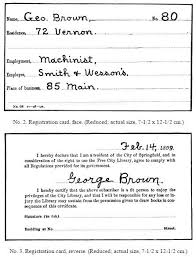 Name, Geo. Brown, No. 80
Residence, 72 Vernon.
Employment, Machinist,
Employer, Smith & Wesson's.
Place of business, 85 Main.
No. 2. Registration card, face. (Reduced; actual size, 7-1/2 x 12-1/2 cm.)
Feb. 14, 1899.
I hereby declare that I am a resident of the City of Springfield, and in
consideration of the right to use the Free City Library, agree to comply with
all Regulations provided for its government.
George Brown.
I hereby certify that the above subscriber is a fit person to enjoy
the privileges of the City Library, and that
he will not
draw books in
Signature (in ink)
Building at No. Street.
No. 3. Registration card, reverse. (Reduced; actual size, 7-1/2 x 12-1/2 cm.)